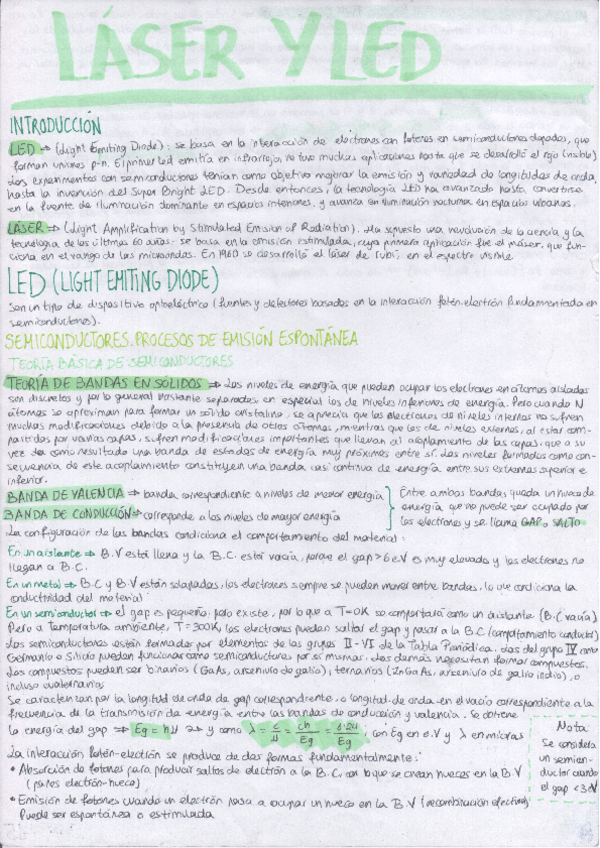 LÁSER Y LED
INTRODUCCIÓN
LED => (Light Emiting Diode): se basa en la interacción de electrones con fotones en semiconductores dopados, que
forman uniones p-n. El primer Led emitía en infrarrojo, no tuvo muchas aplicaciones hasta que se desarrolló el rojo (visible)
Los experimentos con semiconductores tenían como objetivo mejorar la emisión y variedad de longitudes de onda,
hasta la invención del Super Bright LED. Desde entonces, la tecnología LED ha avanzado hasta convertirse
en la fuente de iluminación dominante en espacios interiores, y avanza en iluminación nocturna en espacios urbanos.
LÁSER => (Light Amplification by Stimulated Emision of Radiation). Ha supuesto una revolución de la ciencia y la
tecnología de los últimos 60 años. se basa en la emisión estimulada, cuya primera aplicación fue el máser, que fun-
ciona en el rango de las microondas. En 1960 se desarrolló el láser de rubí, en el espectro visible.
LED (LIGHT EMITING DIODE)
Son un tipo de dispositivo optoeléctrico (fuentes y detectores basados en la interacción fotón-electrón fundamentada en
semiconductores).
SEMICONDUCTORES. PROCESOS DE EMISIÓN ESPONTÁNEA
TEORÍA BÁSICA DE SEMICONDUCTORES
TEORÍA DE BANDAS EN SÓLIDOS => Los niveles de energía que pueden ocupar los electrones en átomos aislados
son discretos y por lo general bastante separados, en especial los de niveles inferiores de energía. Pero cuando N
átomos se aproximan para formar un sólido cristalino, se aprecia que los electrones de niveles internos no sufren
muchas modificaciones debido a la presencia de otros átomos, mientras que los de niveles externos, al estar com-
partidos por varias capas, sufren modificaciones importantes que llevan al acoplamiento de las capas, que a su
vez da como resultado una banda de estados de energía muy próximos entre sí. Los niveles formados como con-
secuencia de este acoplamiento constituyen una banda casi continua de energía entre sus extremos superior e
inferior.
BANDA DE VALENCIA => banda correspondiente a niveles de menor energía
BANDA DE CONDUCCIÓN => corresponde a los niveles de mayor energía
Entre ambas bandas queda un hueco de
energía que no puede ser ocupado por
los electrones y se llama GAP o SALTO
La configuración de las bandas condiciona el comportamiento del material:
En un aislante => B.V está llena y la B.C. está vacía, porque el gap > 6 eV es muy elevado y los electrones no
llegan a B.C.
En un metal => B.C y B.V están solapadas, los electrones siempre se pueden mover entre bandas, lo que condiciona la
conductividad del material.
En un semiconductor => el gap es pequeño, pero existe, por lo que a T=0K se comportará como un aislante (B.C vacía)
Pero a temperatura ambiente, T=300K, los electrones pueden saltar el gap y pasar a la B.C (comportamiento conductor)
Los semiconductores están formados por elementos de los grupos II-VI de la Tabla Periódica. Los del grupo IV como
Germanio o Silicio pueden funcionar como semiconductores por sí mismos. Los demás necesitan formar compuestos.
Los compuestos pueden ser binarios (GaAs, arseniuro de galio), ternarios (InGaAs, arseniuro de galio indio), o
incluso cuaternarios.
Se caracterizan por la longitud de onda de gap correspondiente, o longitud de onda en el vacío correspondiente a la
frecuencia de la transmisión de energía entre las bandas de conducción y valencia. Se obtiene
la energía del gap => Eg = hν y como λ = c/ν = ch/Eg = 1.24/Eg, con Eg en eV y λ en micras
La interacción fotón-electrón se produce de dos formas fundamentalmente:
• Absorción de fotones para producir saltos de electrón a la B.C. con lo que se crean huecos en la B.V
(pares electrón-hueco)
• Emisión de fotones cuando un electrón pasa a ocupar un hueco en la B.V (recombinación efectiva)
Puede ser espontánea o estimulada
Nota
Se considera
un semicon-
ductor cuando
el gap <3eV